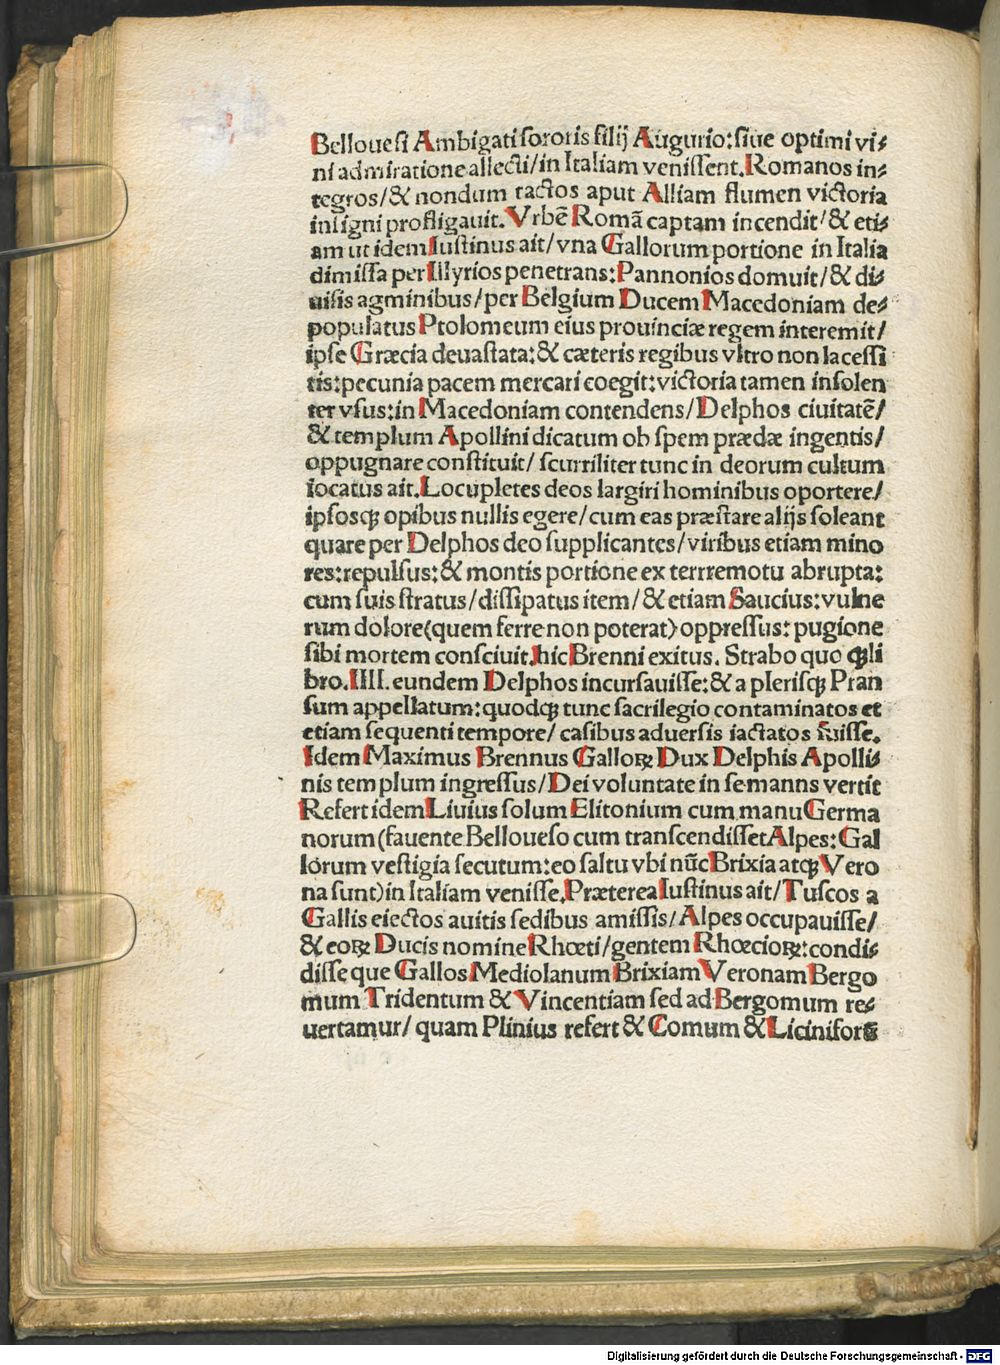 Belloueſi Ambigati ſororis filij Augurio: ſiue optimi vi⸗
ni admiratione allecti/ in Italiam veniſſent. Romanos in⸗
tegros/ & nondum tactos aput Alliam flumen victoria
inſigni profligauit. Vrbē Romā captam incendit/ & eti⸗
am ut idem Iuſtinus ait/ vna Gallorum portione in Italia
dimiſſa per Illyrios penetrans: Pannonios domuit/ & di⸗
uiſis agminibus/ per Belgium Ducem Macedoniam de⸗
populatus Ptolomeum eius prouinciæ regem interemit/
ipſe Græcia deuaſtata: & cæteris regibus vltro non laceſſi
tis: pecunia pacem mercari coegit: victoria tamen inſolen
ter vſus: in Macedoniam contendens/ Delphos ciuitatē/
& templum Apollini dicatum ob ſpem prædæ ingentis/
oppugnare conſtituit/ ſcurriliter tunc in deorum cultum
iocatus ait. Locupletes deos largiri hominibus oportere/
ipſosqꝫ opibus nullis egere/ cum eas præſtare alijs ſoleant
quare per Delphos deo ſupplicantes/ viribus etiam mino
res: repulſus: & montis portione ex terrremotu abrupta:
cum ſuis ſtratus/ diſſipatus item/ & etiam Saucius: vulne
rum dolore (quem ferre non poterat) oppreſſus: pugione
ſibi mortem conſciuit. hic Brenni exitus. Strabo quoqꝫ li
bro. IIII. eundem Delphos incurſauiſſe: & a pleriſqꝫ Pran
ſum appellatum: quodqꝫ tunc ſacrilegio contaminatos et
etiam ſequenti tempore/ caſibus aduerſis iactatos fuiſſe.
Idem Maximus Brennus Galloꝝ Dux Delphis Apolli⸗
nis templum ingreſſus/ Dei voluntate in ſe manns vertit
Refert idem Liuius ſolum Elitonium cum manu Germa
norum (fauente Belloueſo cum tranſcendiſſet Alpes: Gal
lorum veſtigia ſecutum: eo ſaltu vbi nūc Brixia atqꝫ Vero
na ſunt) in Italiam veniſſe. Præterea Iuſtinus ait/ Tuſcos a
Gallis eiectos auitis ſedibus amiſſis/ Alpes occupauiſſe/
& eoꝝ Ducis nomine Rhœti/ gentem Rhœcioꝝ: condi⸗
diſſe que Gallos Mediolanum Brixiam Veronam Bergo
mum Tridentum & Vincentiam ſed ad Bergomum re⸗
uertamur/ quam Plinius refert & Comum & Licinifor
Digitalisierung gefördert durch die Deutsche Forschungsgemeinschaft - DFG